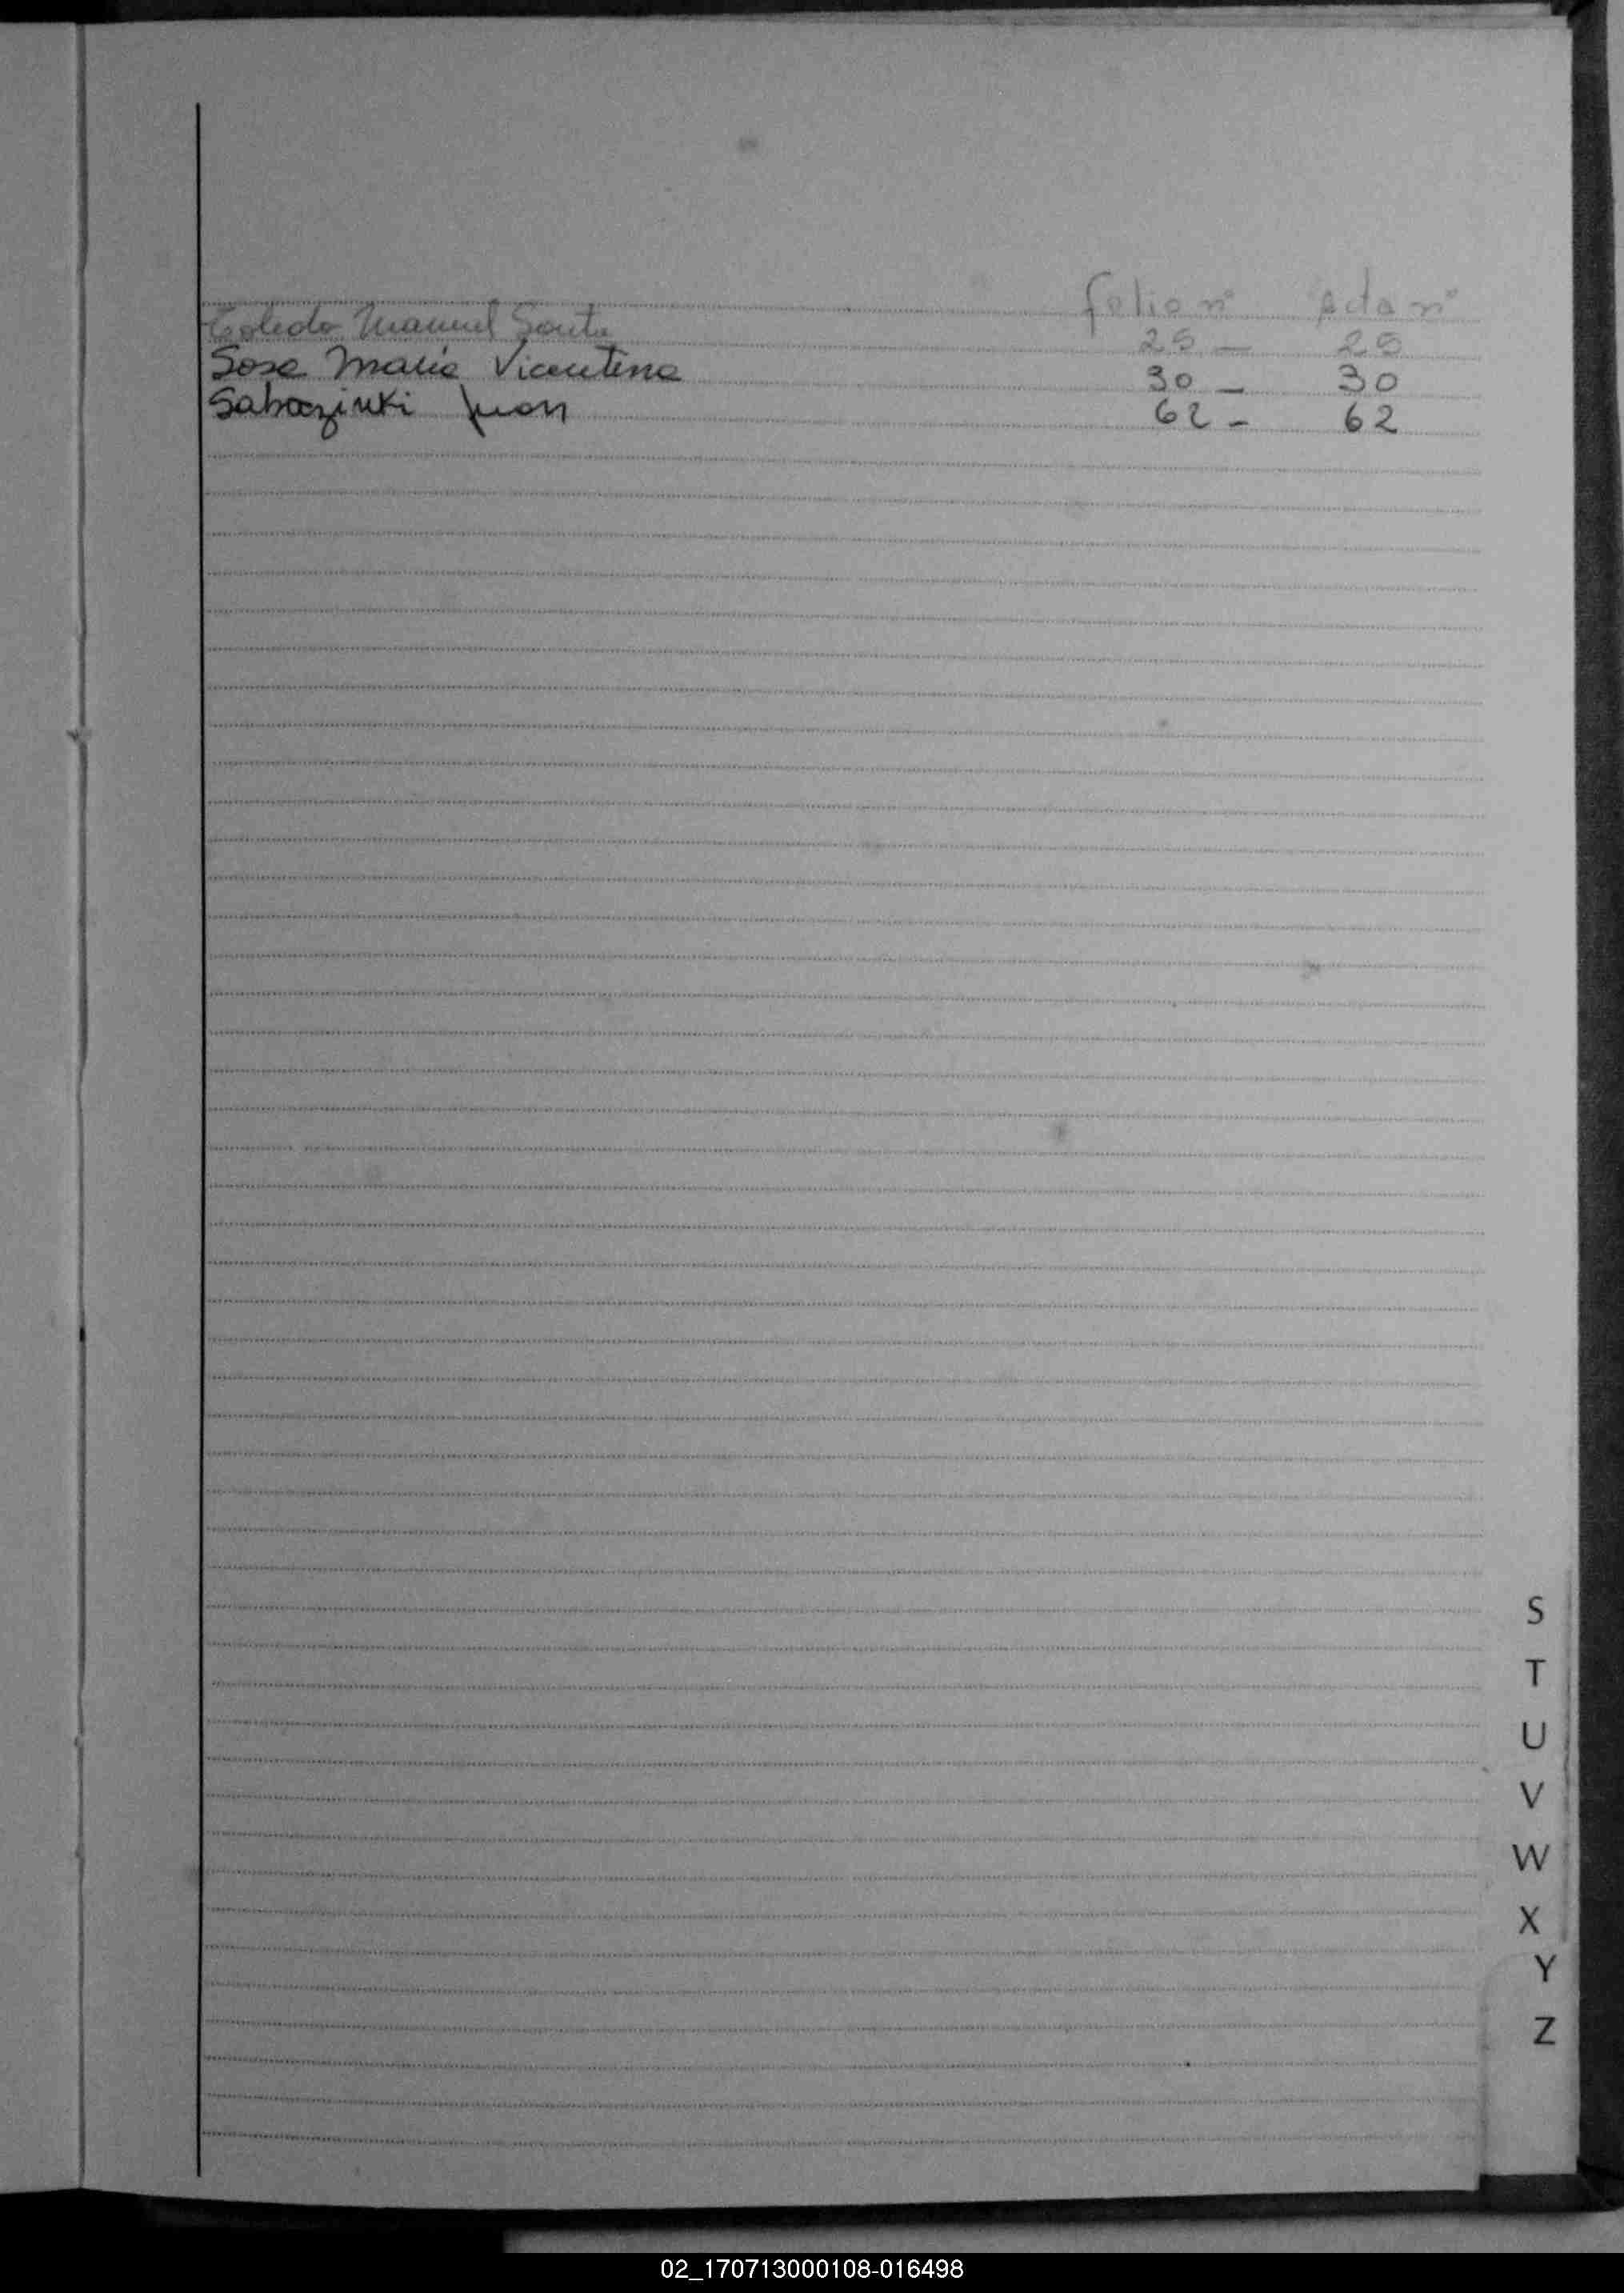 folio nº acta nº
Toledo Manuel Santo 25 - 25
Sosa Maria Vicentina 30 - 30
Juan 62 - 62
S
T
U
V
W
X
Y
Z
02_170713000108-016498